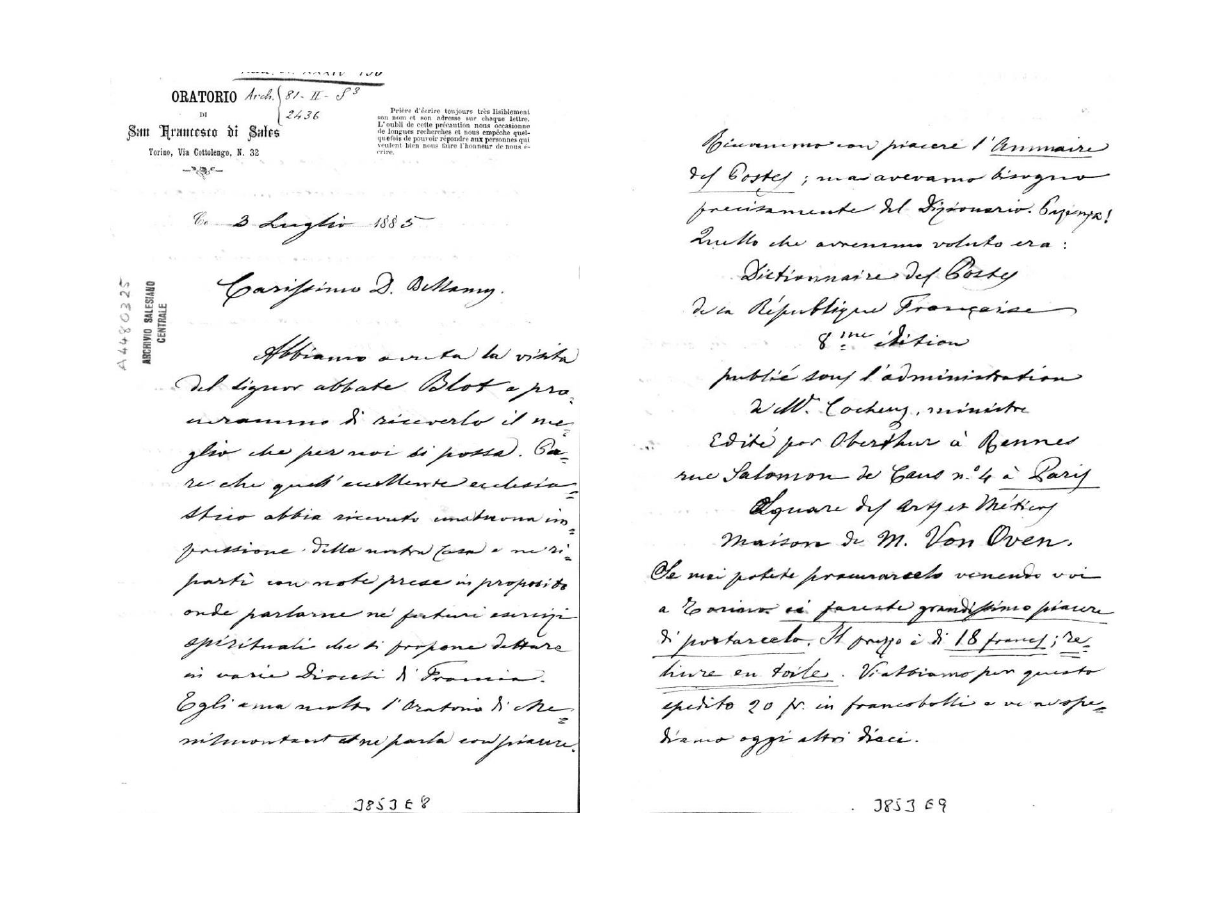 ORATORIO
DI
San Francesco di Sales
Torino, Via Cottolengo, N. 32
Arch. 81-II-S3
2436
Prière d'écrire toujours très lisiblement
son nom et son adresse sur chaque lettre.
L'oubli de cette précaution nous occasionne
de longues recherches et nous empêche quel-
quefois de pouvoir répondre aux personnes qui
veulent bien nous faire l'honneur de nous é-
crire.
3 Luglio 1885
A4480325
ARCHIVIO SALESIANO
CENTRALE
Carissimo D. Bellamy.
Abbiamo avuta la visita
del signor abbate Blot e pro=
curammo di riceverlo il me=
glio che per noi si possa. Pa=
re che quell'eccellente ecclesia=
stico abbia ricevuto una buona im=
pressione della nostra Casa e ne ri=
partì con note prese in proposito
onde parlarne ne' futuri esercizi
spirituali che si propone dettare
in varie Diocesi di Francia.
Egli ama molto l'Oratorio di Me=
nilmontant et ne parla con piacere.
3853 E 8
Ricevemmo con piacere l'Annuaire
des Postes; ma avevamo bisogno
precisamente del Dizionario. Pazienza!
Quello che avremmo voluto era:
Dictionnaire des Postes
de la République Française
8me édition
publié sous l'administration
de Mr. Cochery, ministre
Edité par Oberthur à Rennes
rue Salomon de Caus n.° 4 à Paris
Square des Arts et Métiers
Maison de M. Von Oven.
Se mai potete procurarcelo venendo voi
a Torino ci fareste grandissimo piacere
di portarcelo. Il prezzo è di 18 francs; re=
liure en toile. Vi abbiamo per questo
spedito 20 fr. in francobolli e ve ne spe=
diamo oggi altri dieci.
3853 E9